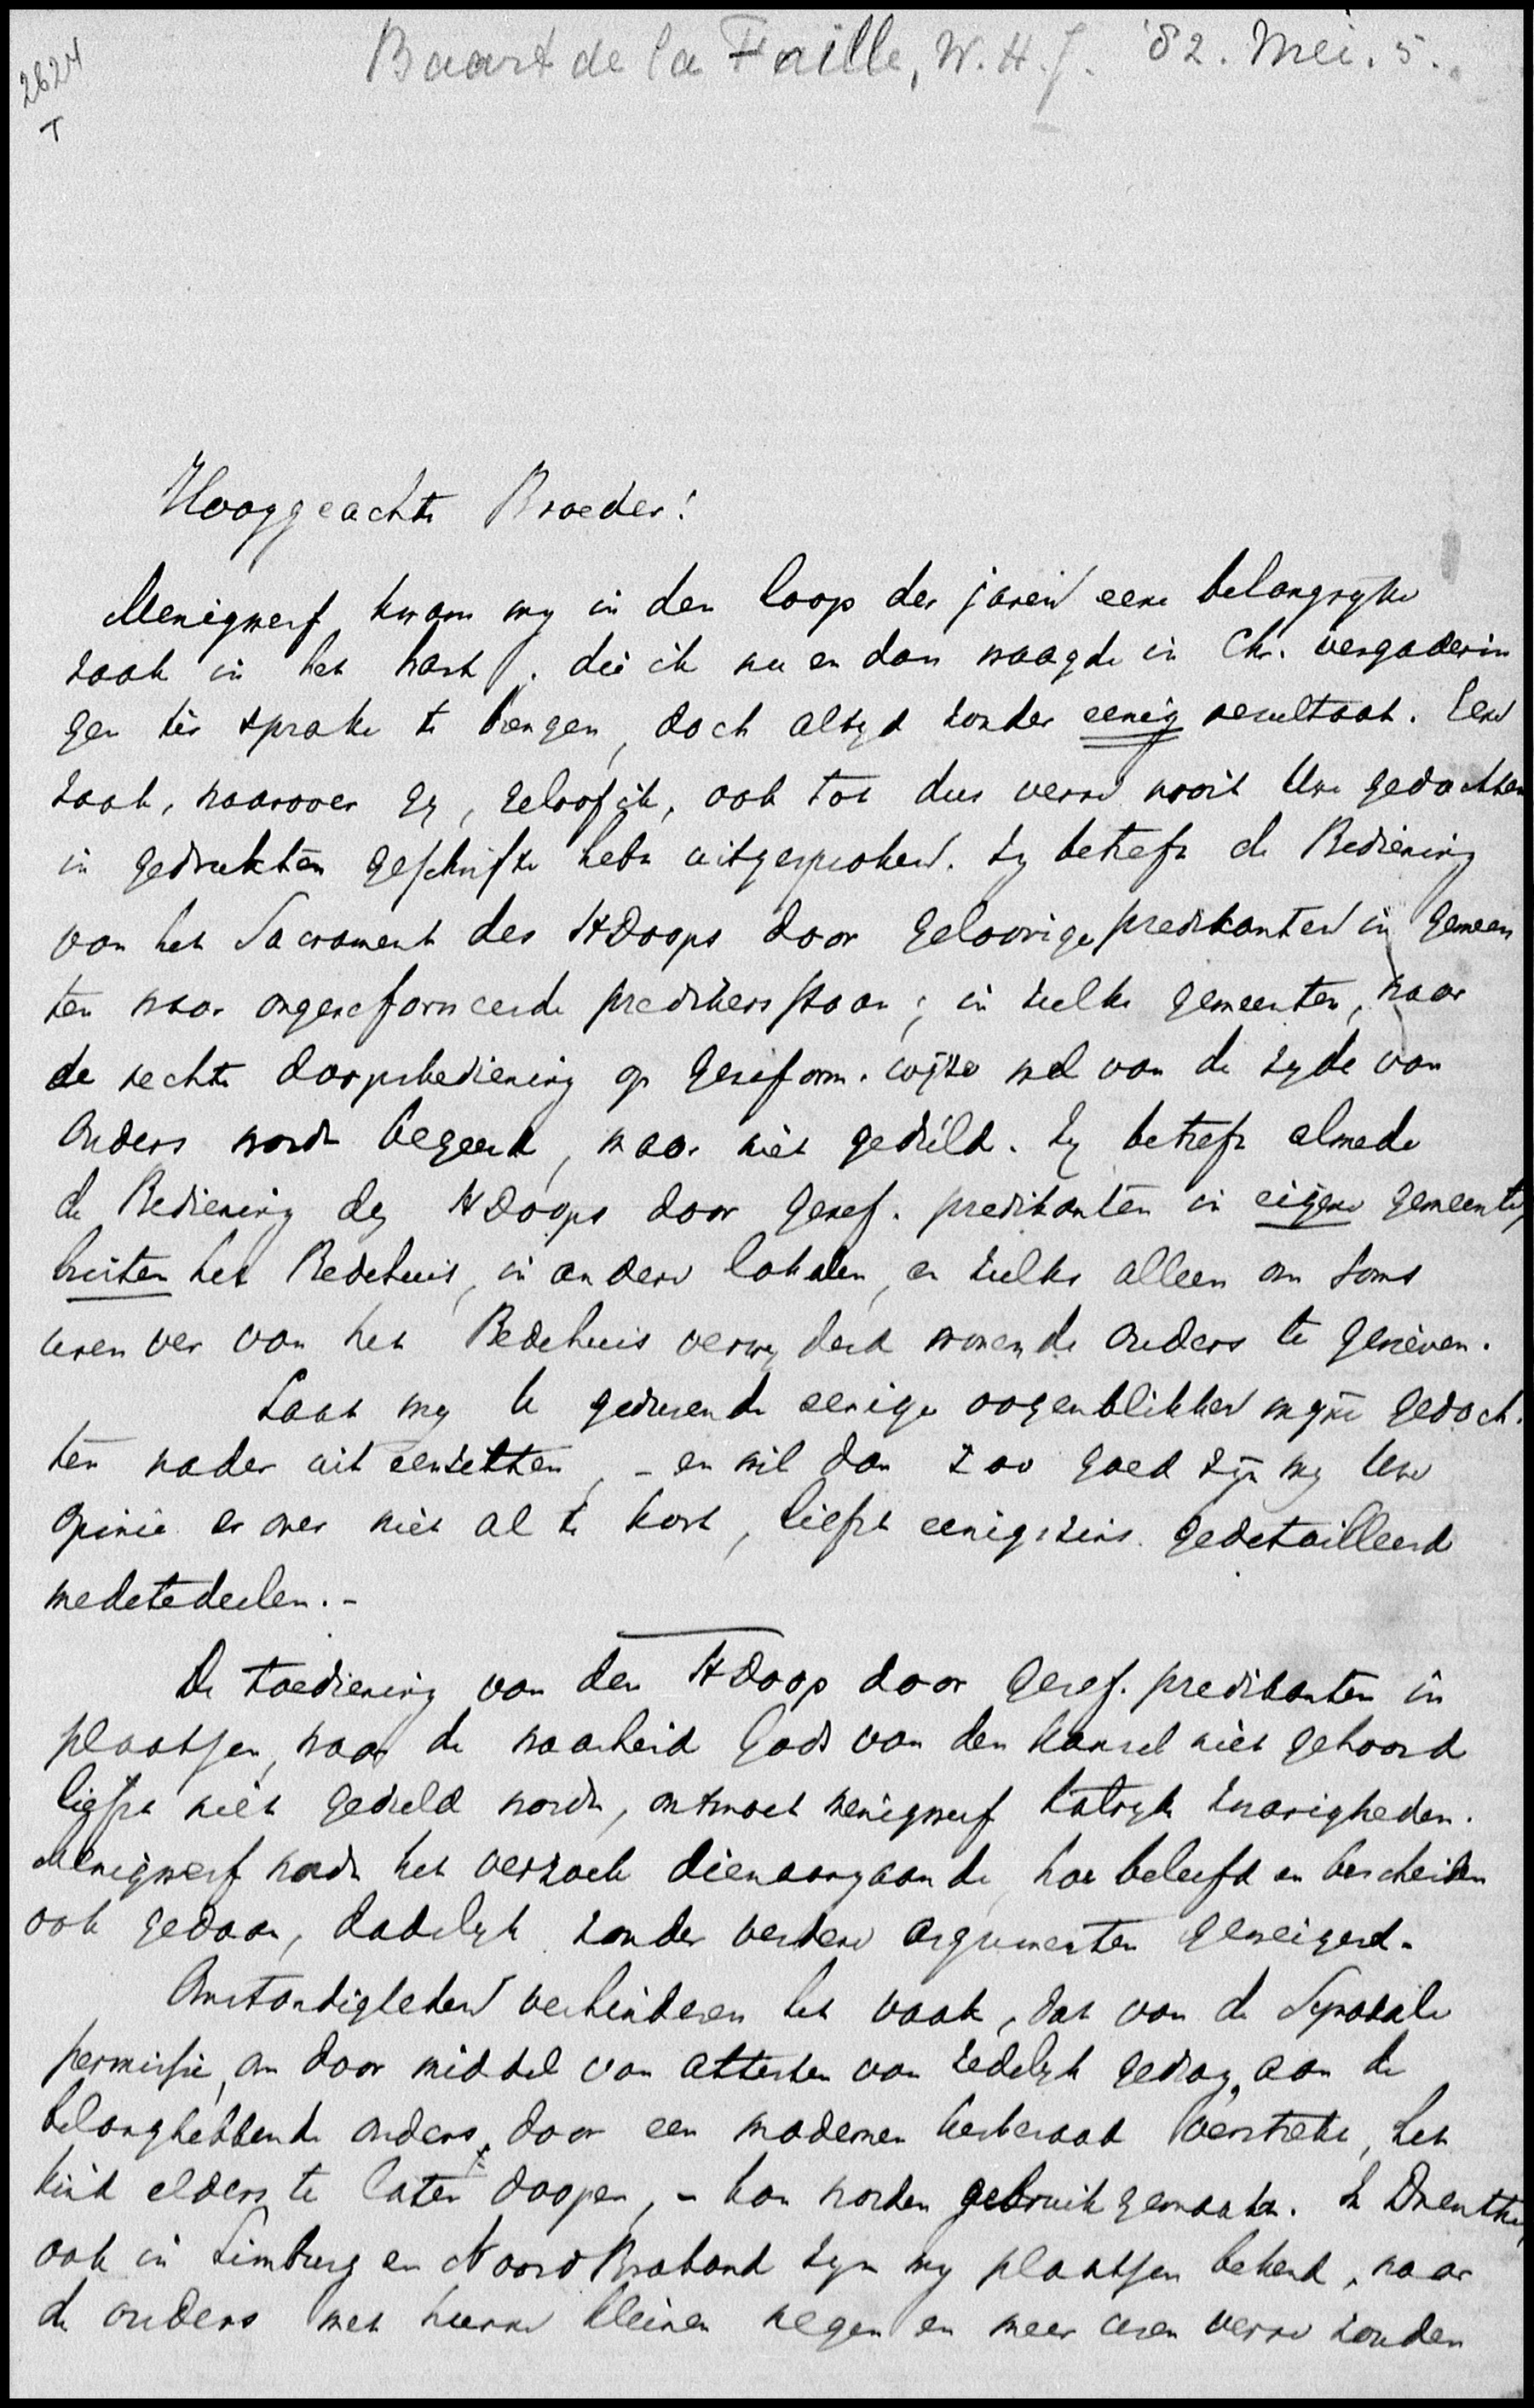 2624
T
Baart de la Faille, W.H.J. '82. Mei. 5.
Hooggeachte Broeder!
Menigwerf kwam my in den loop der jaren eene belangryke
zaak in het hart, die ik nu en dan waagde in Chr. vergaderin
gen ter sprake te brengen, doch altyd zonder eenig resultaat. Eene
zaak, waarover gy, geloof ik, ook tot dus verre nooit Uwe gedachten
in gedrukten geschrifte hebt uitgesproken. Zy betreft de Bediening
van het Sacrament des H Doops door geloovige predikanten in gemeen
ten waar ongereformeerde predikers staan; in zulke gemeenten, waar
de rechte doopsbediening op gereform. wijze wel van de zyde van
ouders wordt begeerd, maar niet geduld. Zy betreft almede
de Bediening des H Doops door geref. predikanten in eigene gemeente,
buiten het Bedehuis, in andere lokalen, en zulks alleen om soms
uren ver van het Bedehuis verwyderd wonende ouders te gerieven.
Laat my U gedurende eenige oogenblikken myne gedach-
ten nader uit eenzetten, - en wil dan zoo goed zyn my Uw
opinie er over niet al te kort, liefst eenigszins gedetailleerd
medetedeelen. -
De toediening van den H Doop door geref. predikanten in
plaatsen, waar de waarheid Gods van den kansel niet gehoord
liefst niet geduld wordt, ontmoet menigwerf talryke zwarigheden.
Menigwerf wordt het verzoek dienaangaande, hoe beleefd en bescheiden
ook gedaan, dadelyk zonder verdere argumenten geweigerd.
Omstandigheden verhinderen het vaak, dat van de Synodale
permissie, om door middel van attesten van zedelyk gedrag, aan de
belanghebbende ouders door een modernen kerkeraad verstrekt, het
kind elders te laten doopen, - kan worden gebruik gemaakt. In Drenthe,
ook in Limburg en Noord Braband zyn my plaatsen bekend, waar
de ouders met hunne kleinen negen en meer uren verre zouden